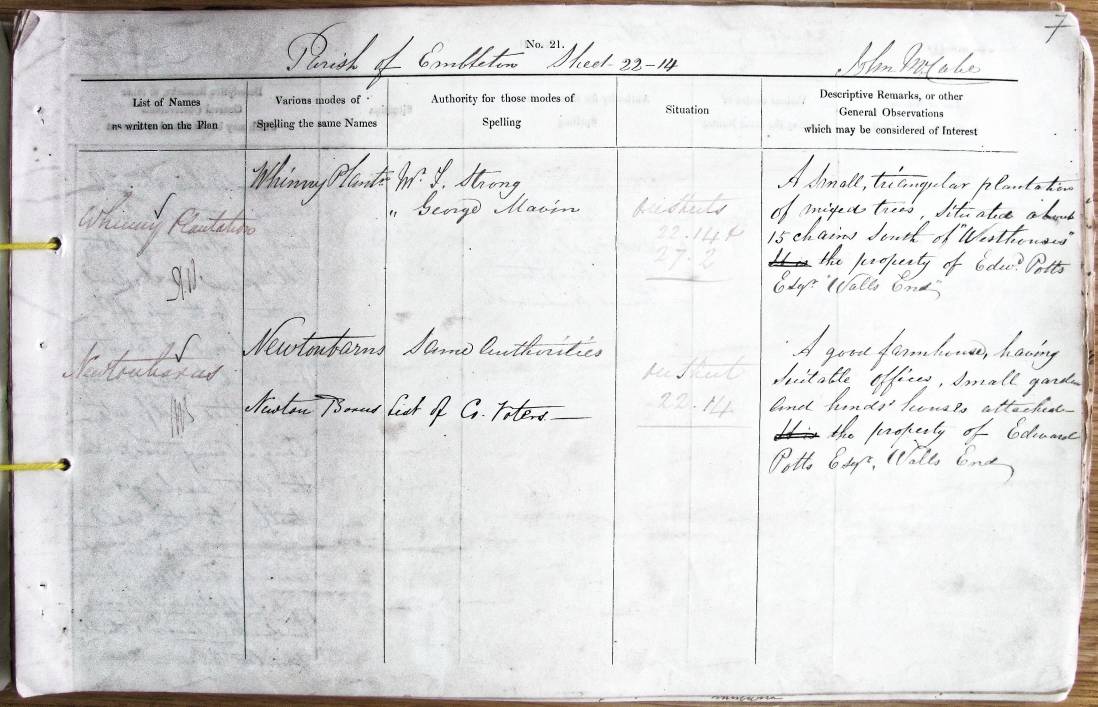 7
No. 21.
Parish of Embleton Sheet 22-14 John McCabe
List of Names
as written on the Plan
Various modes of
Spelling the same Names
Authority for those modes of
Spelling
Situation
Descriptive Remarks, or other
General Observations
which may be considered of Interest
Whinny Plantation
Whinny Plantn
W. S. Strong
" George Mavin
On Sheets
22.14 &
27.2
A small, triangular plantation
of mixed trees, situated about
15 chains South of "Westhouses"
It is the property of Edwd. Potts
Esqr. "Walls End"
Newtonbarns
Newtonbarns
Same authorities
Newton Barns
List of Co. Voters.
on Sheet
22.14
A good farmhouse, having
Suitable offices, small garden
and hinds' houses attached
It is the property of Edward
Potts Esqr. Walls End